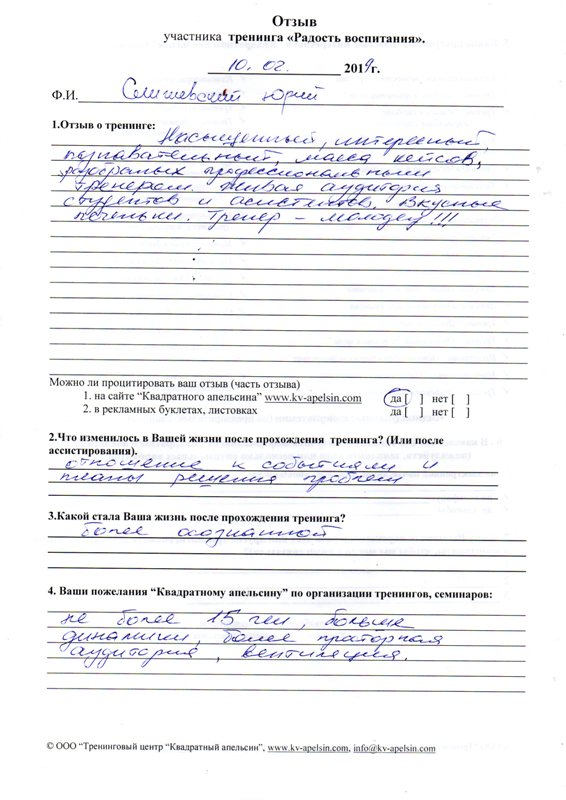 Отзыв
участника тренинга «Радость воспитания».
10. 02. 2019г.
Ф.И. Юрий
1.Отзыв о тренинге:
Насыщенный, интересный,
познавательный, масса кейсов,
разобранных профессиональными
тренером. Живая аудитория
студентов и асистентов. Вкусные
печеньки. Тренер – молодец!!!
Можно ли процитировать ваш отзыв (часть отзыва)
1. на сайте “Квадратного апельсина” www.kv-apelsin.com да [ ] нет [ ]
2. в рекламных буклетах, листовках да [ ] нет [ ]
2.Что изменилось в Вашей жизни после прохождения тренинга? (Или после
ассистирования).
отношение к событиями и
планы решения проблем
3.Какой стала Ваша жизнь после прохождения тренинга?
более осознанной
4. Ваши пожелания “Квадратному апельсину” по организации тренингов, семинаров:
не более 15 чел, больше
динамики, более праторная
аудитория, вентиляция.
© ООО “Тренинговый центр “Квадратный апельсин”, www.kv-apelsin.com, info@kv-apelsin.com